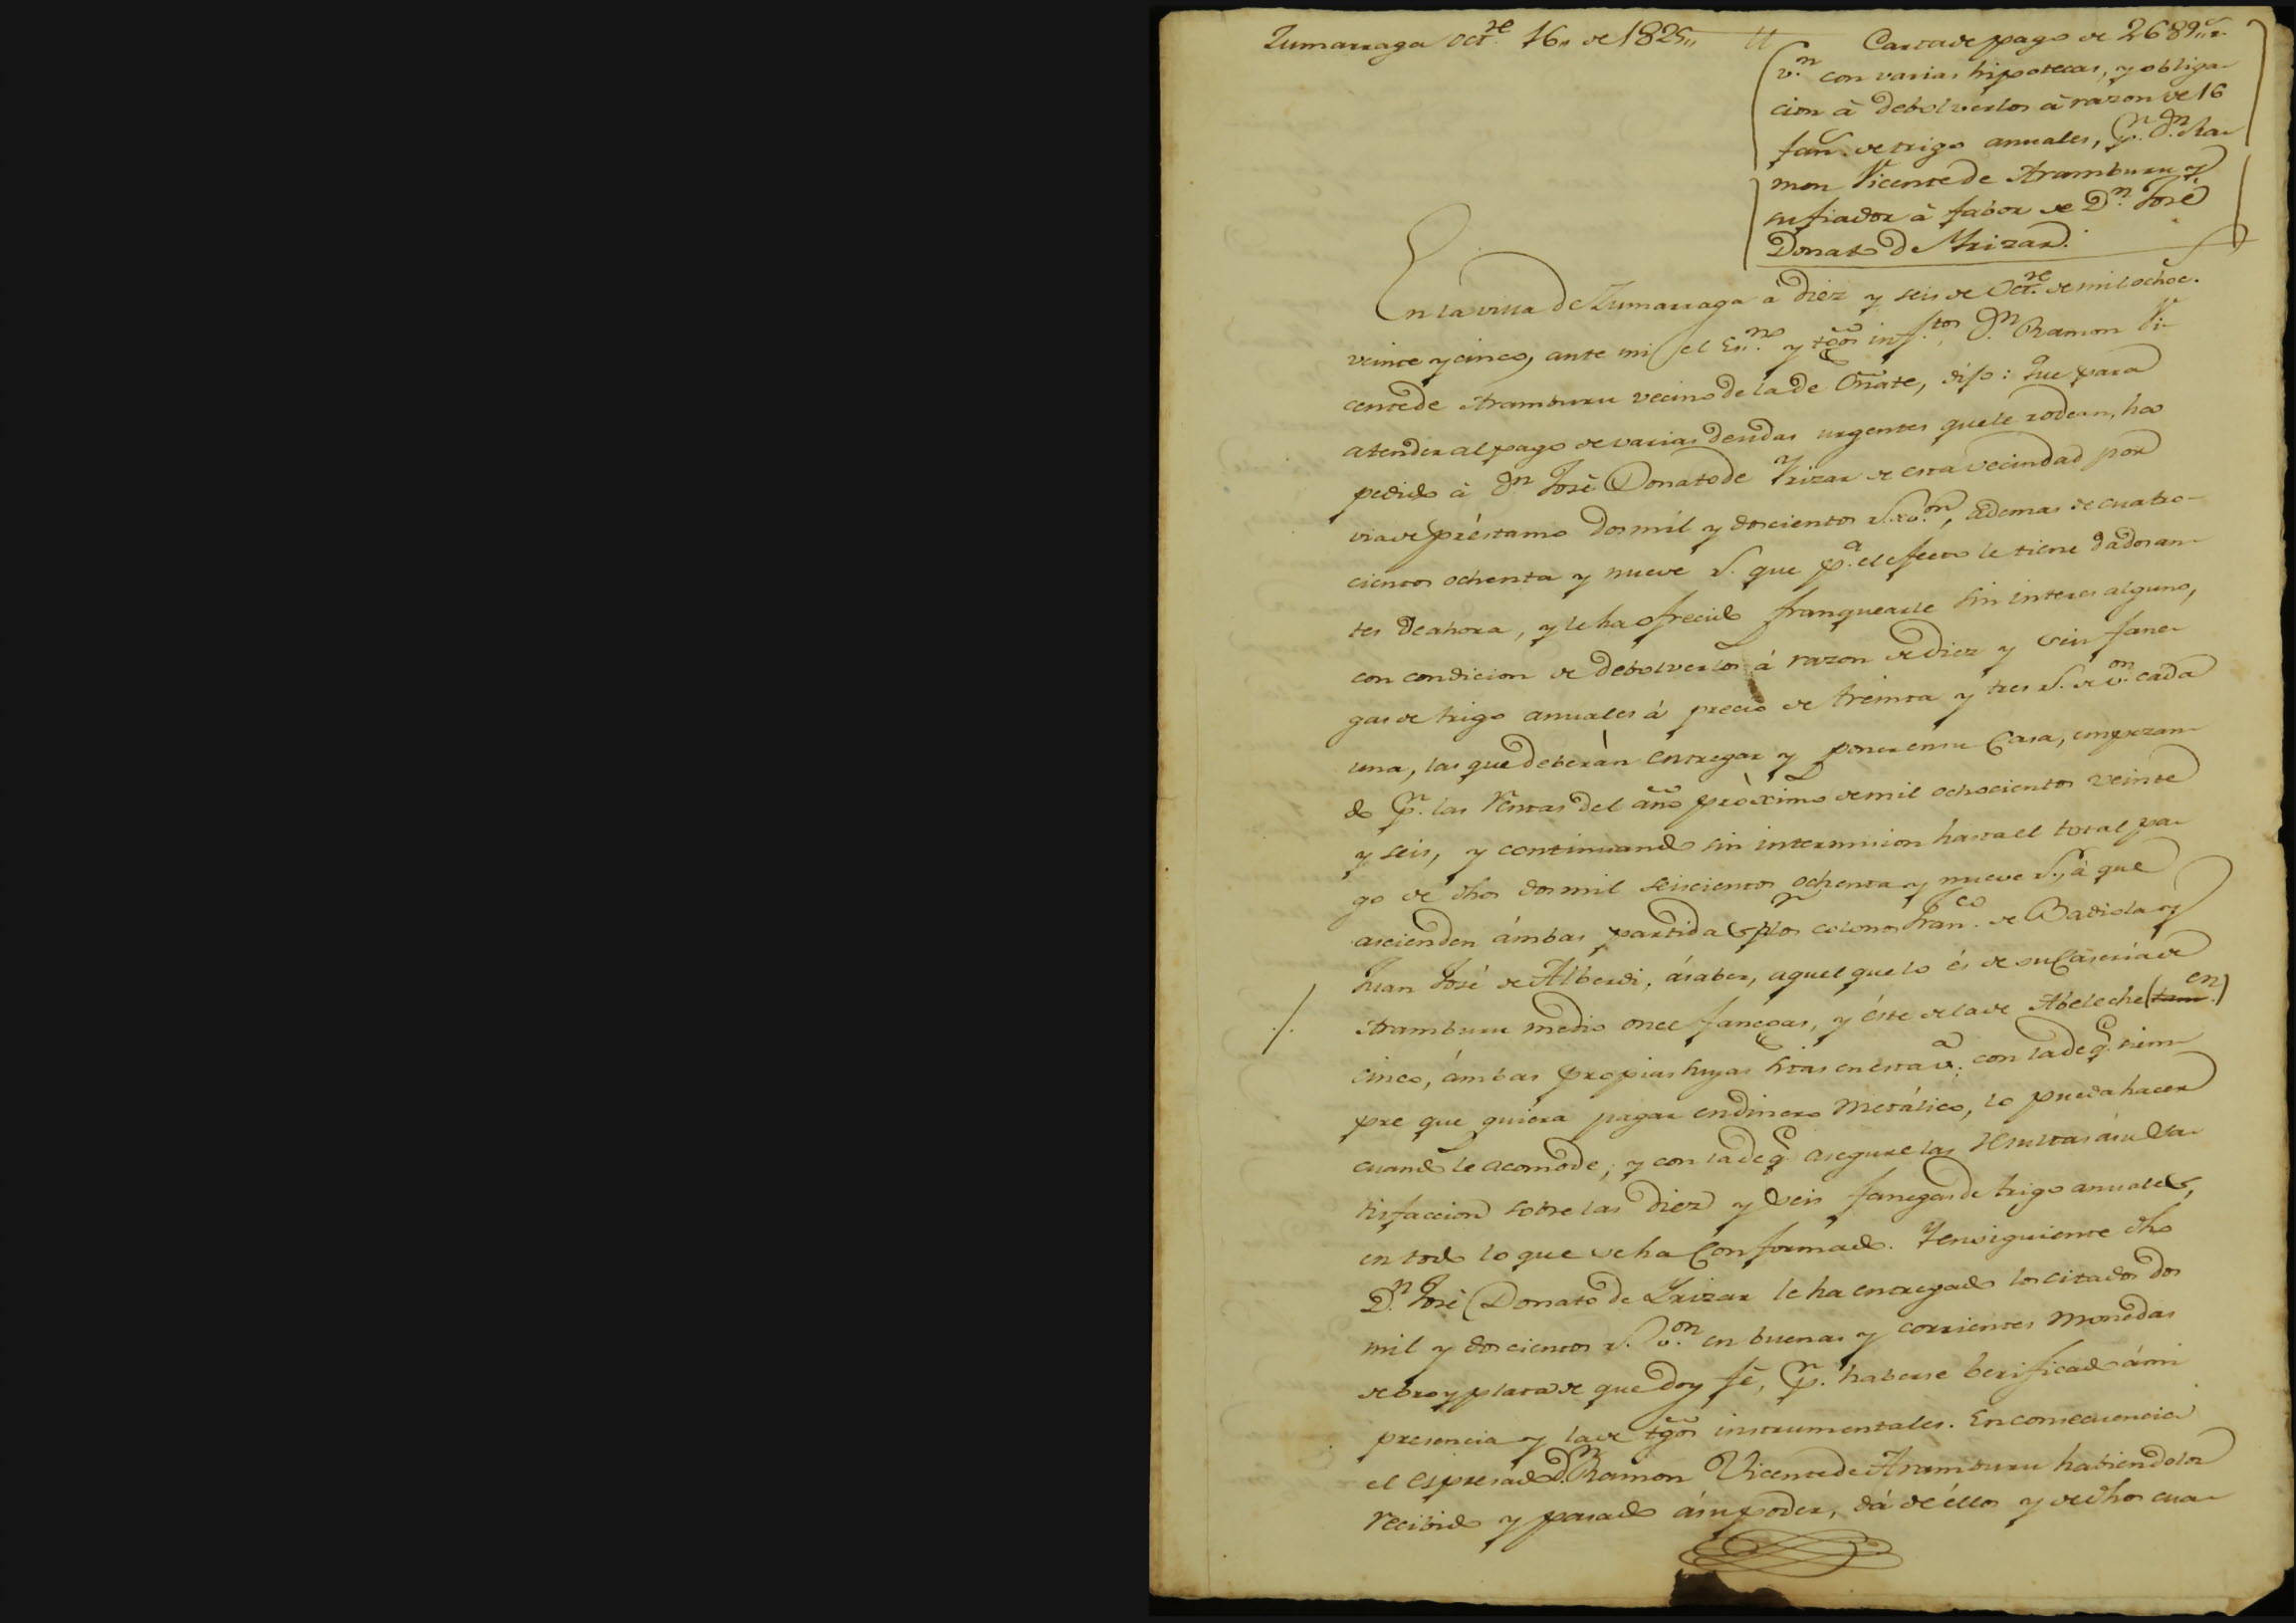 Zumarraga Oct.re 16,, de 1825,,
Carta de pago de 2689,, r.s
v.n con varias hipotecas, y obliga-
cion à debolverlos à razon de 16
fan.s de trigo anuales, p.r D.n Ra-
mon Vicente de Aramburu y
su fiador à fabor de D.n José
Donato de Yrizar.
En la villa de Zumarraga à diez y seis de Oct.re de mil ochoc.
veinte y cinco, ante mi el Es.no y tgõs inf.tos D.n Ramon Vi-
cente de Aramburu vecino de la de Oñate, dijo: Que para
atender al pago de varias deudas urgentes que le rodean, ha
pedido à D.n José Donato de Yrizar de esta vecindad por
via de préstamo dos mil y doscientos r.s v.on, ademas de cuatro-
cientos ochenta y nueve r.s que p.a el efecto le tiene dados an-
tes de ahora, y le ha ofrecido franquearle sin interes alguno,
con condicion de debolverlos à razon de diez y seis fane-
gas de trigo anuales à precio de treinta y tres r.s de v.on cada
una, las que deberàn entregar y poner en su Casa, empezan-
do p.r las Rentas del año pròximo de mil ochocientos veinte
y seis, y continuando sin intermision hasta el total pa-
go de dhos dos mil seiscientos ochenta y nueve r.s, à que
ascienden ámbas partidas p.r los colonos Fran.co de Badiola y
Juan José de Alberdi, ásaber, aquel que lo és de su Caseria de
Aramburu medio once fanegas, y éste de la de Abeleche (tam.) en
cinco, ámbas propias suyas sitas en esta v.a; con la de q.e siem-
pre que quiera pagar en dinero metálico, lo pueda hacer
cuando le acomode; y con la de q.e asegure las resultas ásu sa-
tisfaccion sobre las diez y seis fanegas de trigo anuales,
en todo lo que se ha conformado. Y ensiguiente dho
D.n José Donato de Yrizar le ha entregado los citados dos
mil y doscientos r.s v.on en buenas y corrientes monedas
de oro y plata de que doy fé, p.r haberse berificado á mi
presencia y la de tgõs instrumentales. En consecuencia
el espresado D.n Ramon Vicente de Aramburu habiendolos
recibido y pasado ásu poder, dá de éllos y de dhos cua-